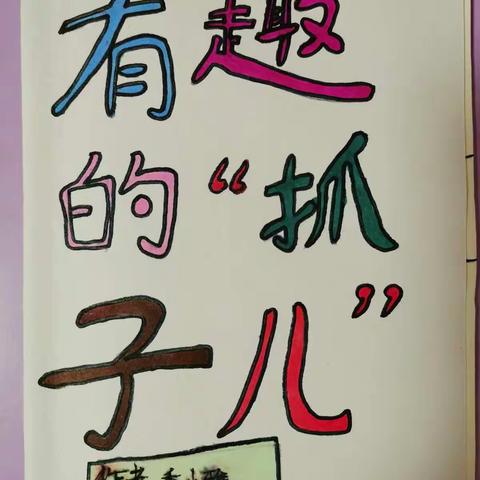 有趣
的“抓
子儿”
作者